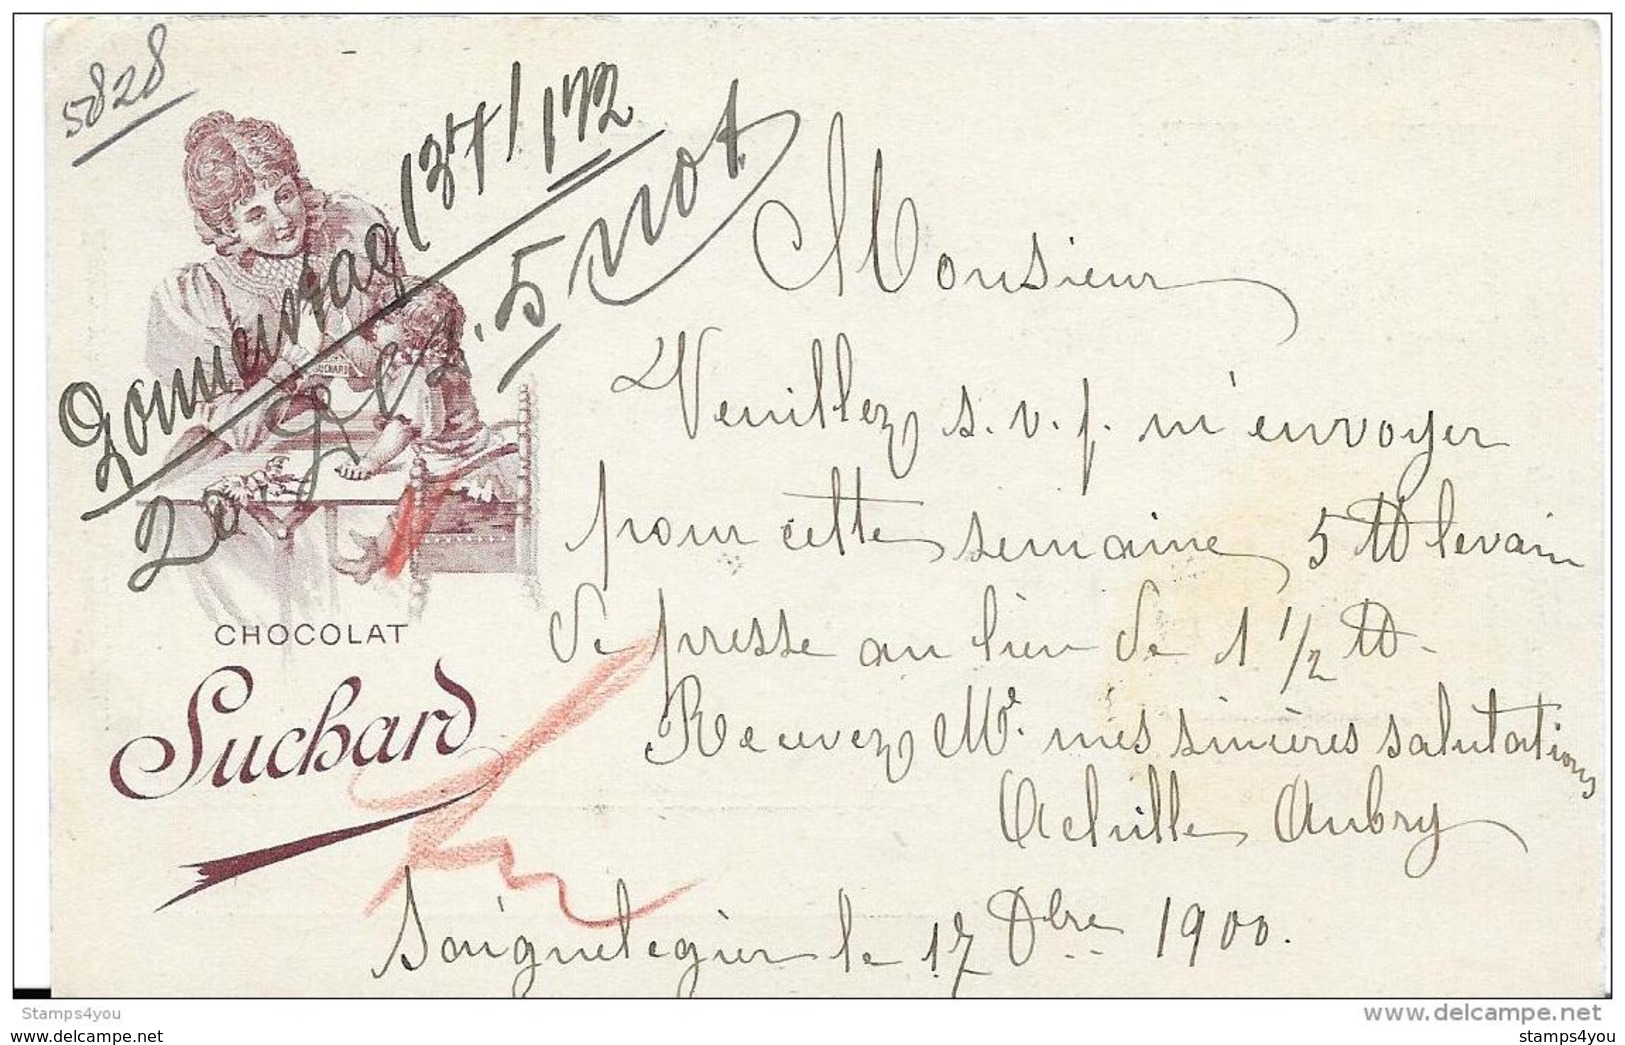 5828
Donnerstag 137/172
20. Dez. 5 not
SUCHARD
CHOCOLAT
Suchard
Monsieur
Veuillez s. v. p. m'envoyer
pour cette semaine 5 ℔ levain
de presse au lieu de 1 1/2 ℔.
Recevez Mr. mes sincères salutations
Achille Aubry
Saignelegier le 17 Dbre 1900.
Stamps4you
www.delcampe.net
stamps4you
stamps4you